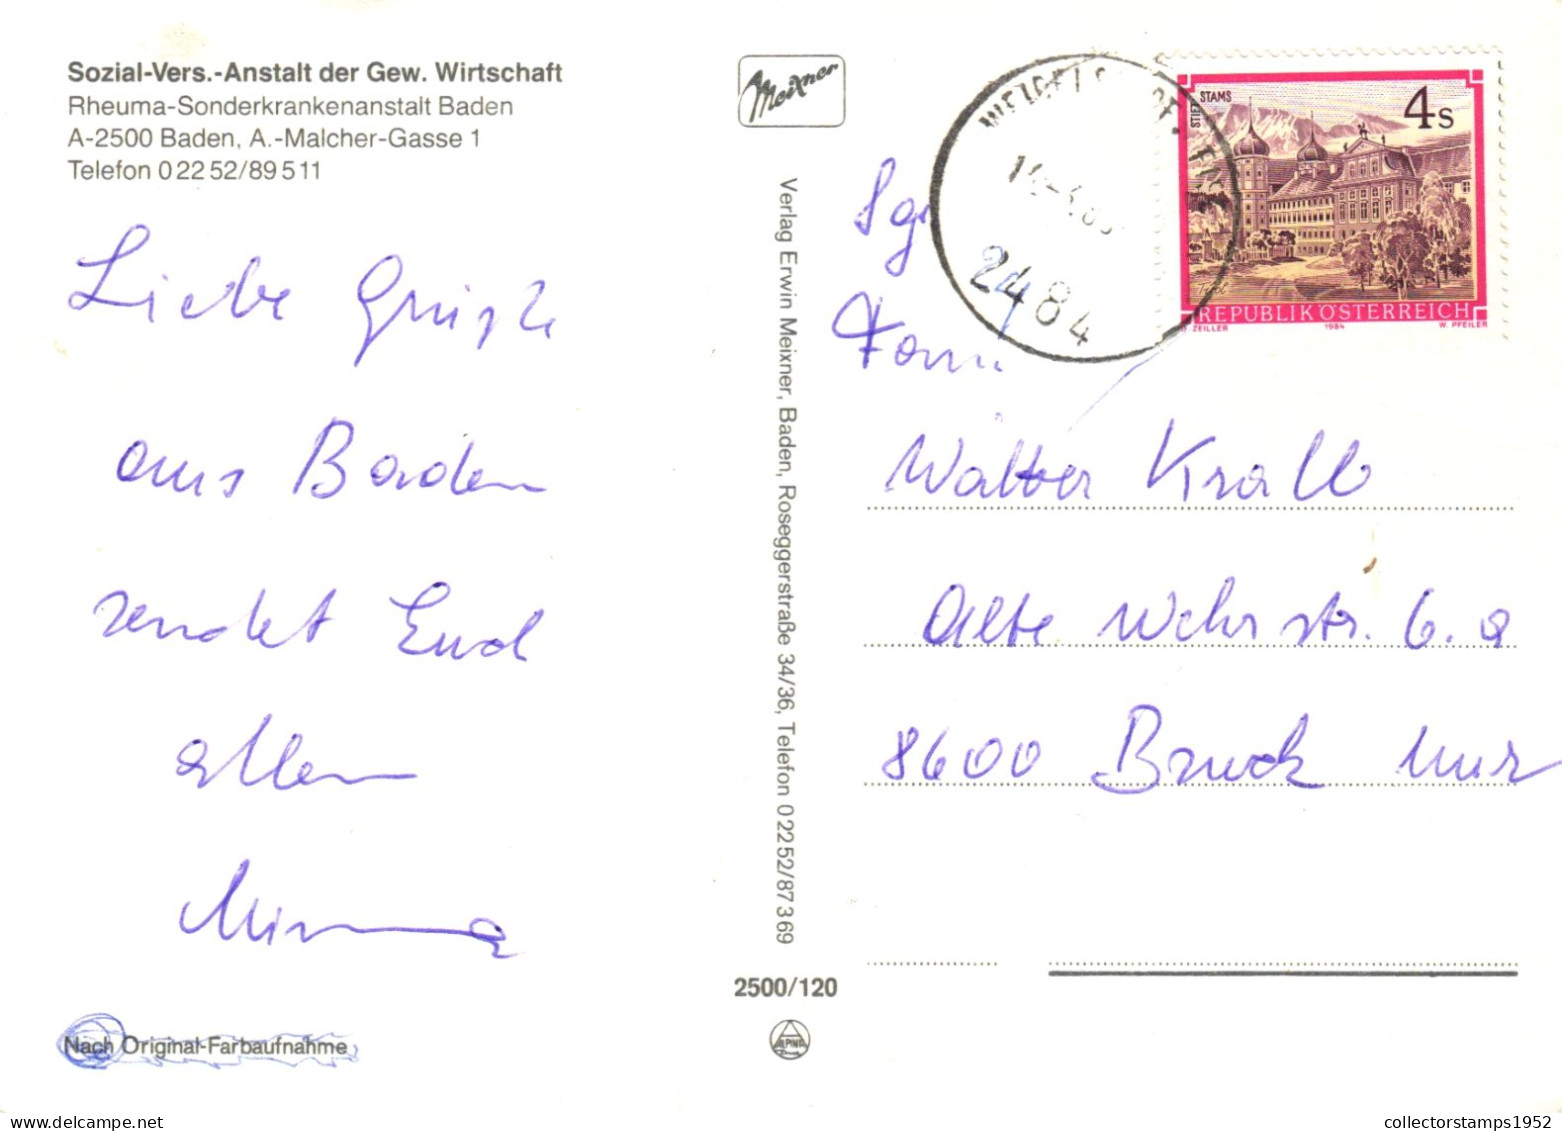 Sozial-Vers.-Anstalt der Gew. Wirtschaft
Rheuma-Sonderkrankenanstalt Baden
A-2500 Baden, A.-Malcher-Gasse 1
Telefon 0 22 52/89 5 11
Liebe Grüße
aus Baden
sendet Euch
allen
Minna
Nach Original-Farbaufnahme
Meixner
Verlag Erwin Meixner, Baden, Roseggerstraße 34/36, Telefon 0 22 52/87 3 69
2500/120
2484
STIFT STAMS
4s
Tirol
REPUBLIK ÖSTERREICH
ZEILLER 1984 W. PFEILER
Fam.
Walter Krall
Alte Wehrstr. 6.a
8600 Bruck Mur
collectorstamps1952